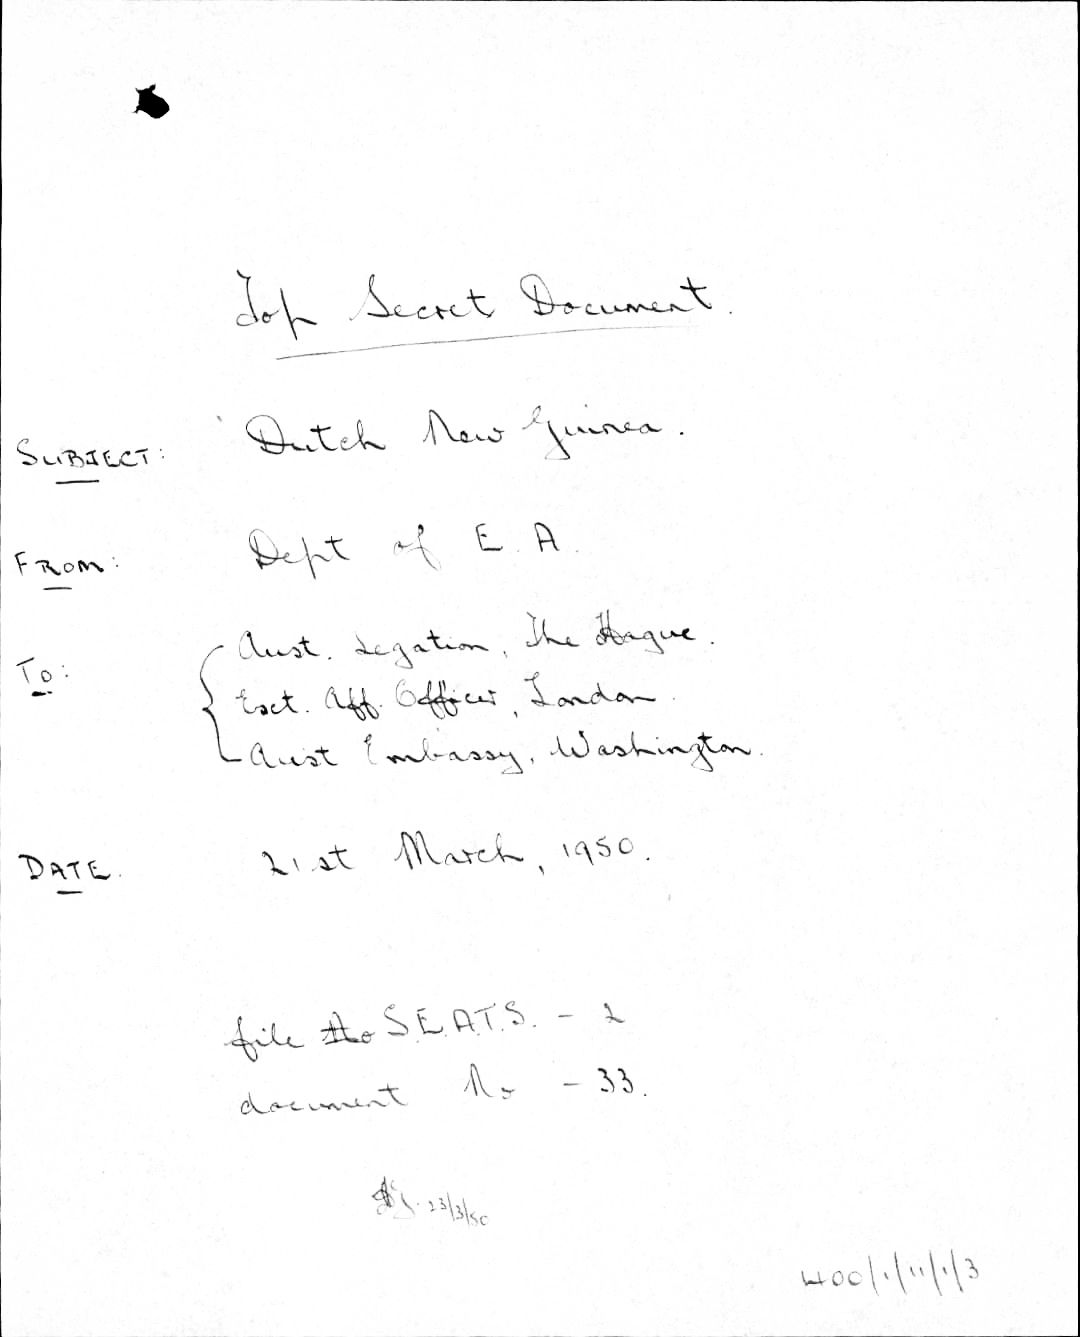 Top Secret Document.
SUBJECT: Dutch New Guinea.
FROM: Dept of E. A.
To: Aust. Legation, The Hague.
Ext. Aff. Officer, London.
Aust Embassy, Washington.
DATE. 21st March, 1950.
file No S.E.A.T.S. - 2
document No - 33.
23/3/50
400/1/11/1/3